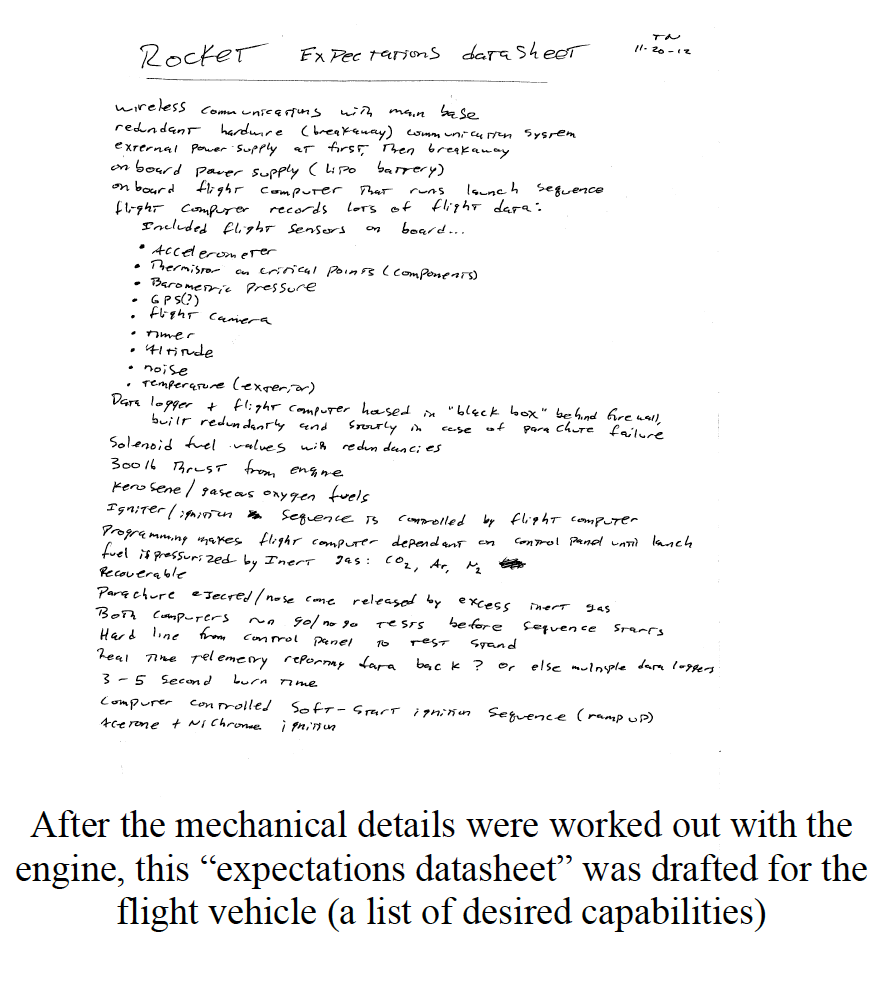 Rocket Expectations datasheet
TN
11-20-12
wireless communications with main base
redundant hardwire (breakaway) communication system
external power supply at first, then breakaway
on board power supply (LiPo battery)
on board flight computer that runs launch sequence
flight computer records lots of flight data:
Included flight sensors on board...
• Accelerometer
• Thermistor on critical points (components)
• Barometric pressure
• GPS(?)
• flight camera
• timer
• Altitude
• noise
• temperature (exterior)
Data logger + flight computer housed in "black box" behind firewall,
built redundantly and stoutly in case of parachute failure
Solenoid fuel valves with redundancies
300 lb thrust from engine
Kerosene/gaseous oxygen fuels
Igniter/ignition sequence is controlled by flight computer
Programming makes flight computer dependant on control panel until launch
fuel is pressurized by Inert gas: CO2, Ar, N2
Recoverable
Parachute ejected/nose cone released by excess inert gas
Both computers run go/no go tests before sequence starts
Hard line from control panel to test stand
Real time telemetry reporting data back? or else multiple data loggers
3-5 second burn time
Computer controlled soft-start ignition sequence (ramp up)
Acetone + NiChrome ignition
After the mechanical details were worked out with the
engine, this “expectations datasheet” was drafted for the
flight vehicle (a list of desired capabilities)